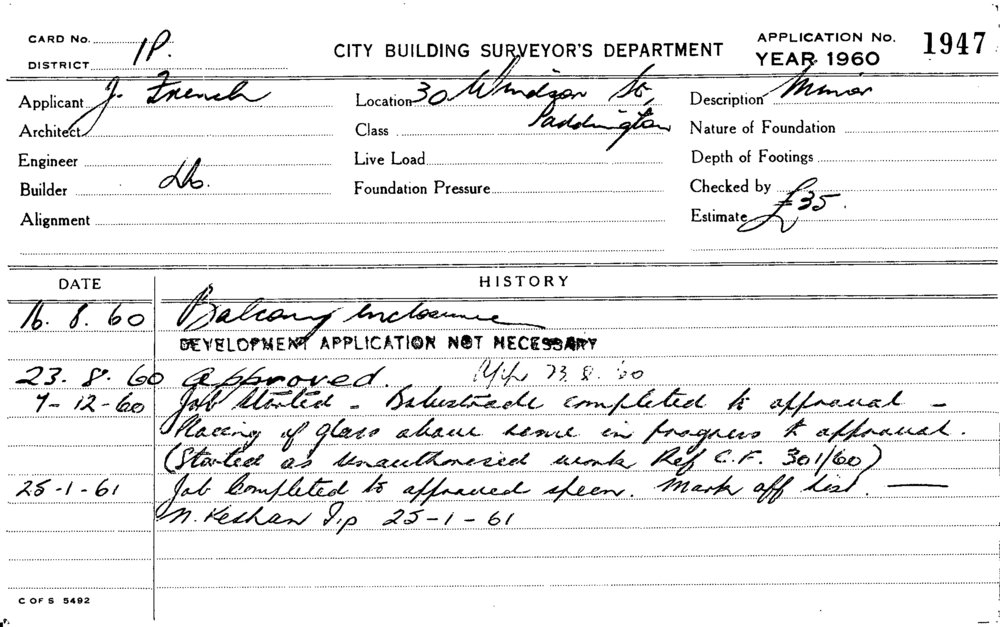 CARD No.
DISTRICT 1P.
CITY BUILDING SURVEYOR'S DEPARTMENT
APPLICATION No. 1947
YEAR 1960
Applicant J. French
Location 30 Windsor St,
Paddington
Description Minor
Architect
Class
Nature of Foundation
Engineer
Live Load
Depth of Footings
Builder Do.
Foundation Pressure
Checked by
Alignment
Estimate £35.
DATE HISTORY
16. 8. 60 Balcony enclosure
DEVELOPMENT APPLICATION NOT NECESSARY
23. 8. 60 Approved. 23. 8. 60
7-12-60 Job Started - Balustrade completed to approval -
Placing of glass above same in progress to approval.
(Started as unauthorised work Ref C.F. 301/60)
25-1-61 Job Completed to approved specn. Mark off list. —
N. Keshan I.p 25-1-61
C OF S 5492